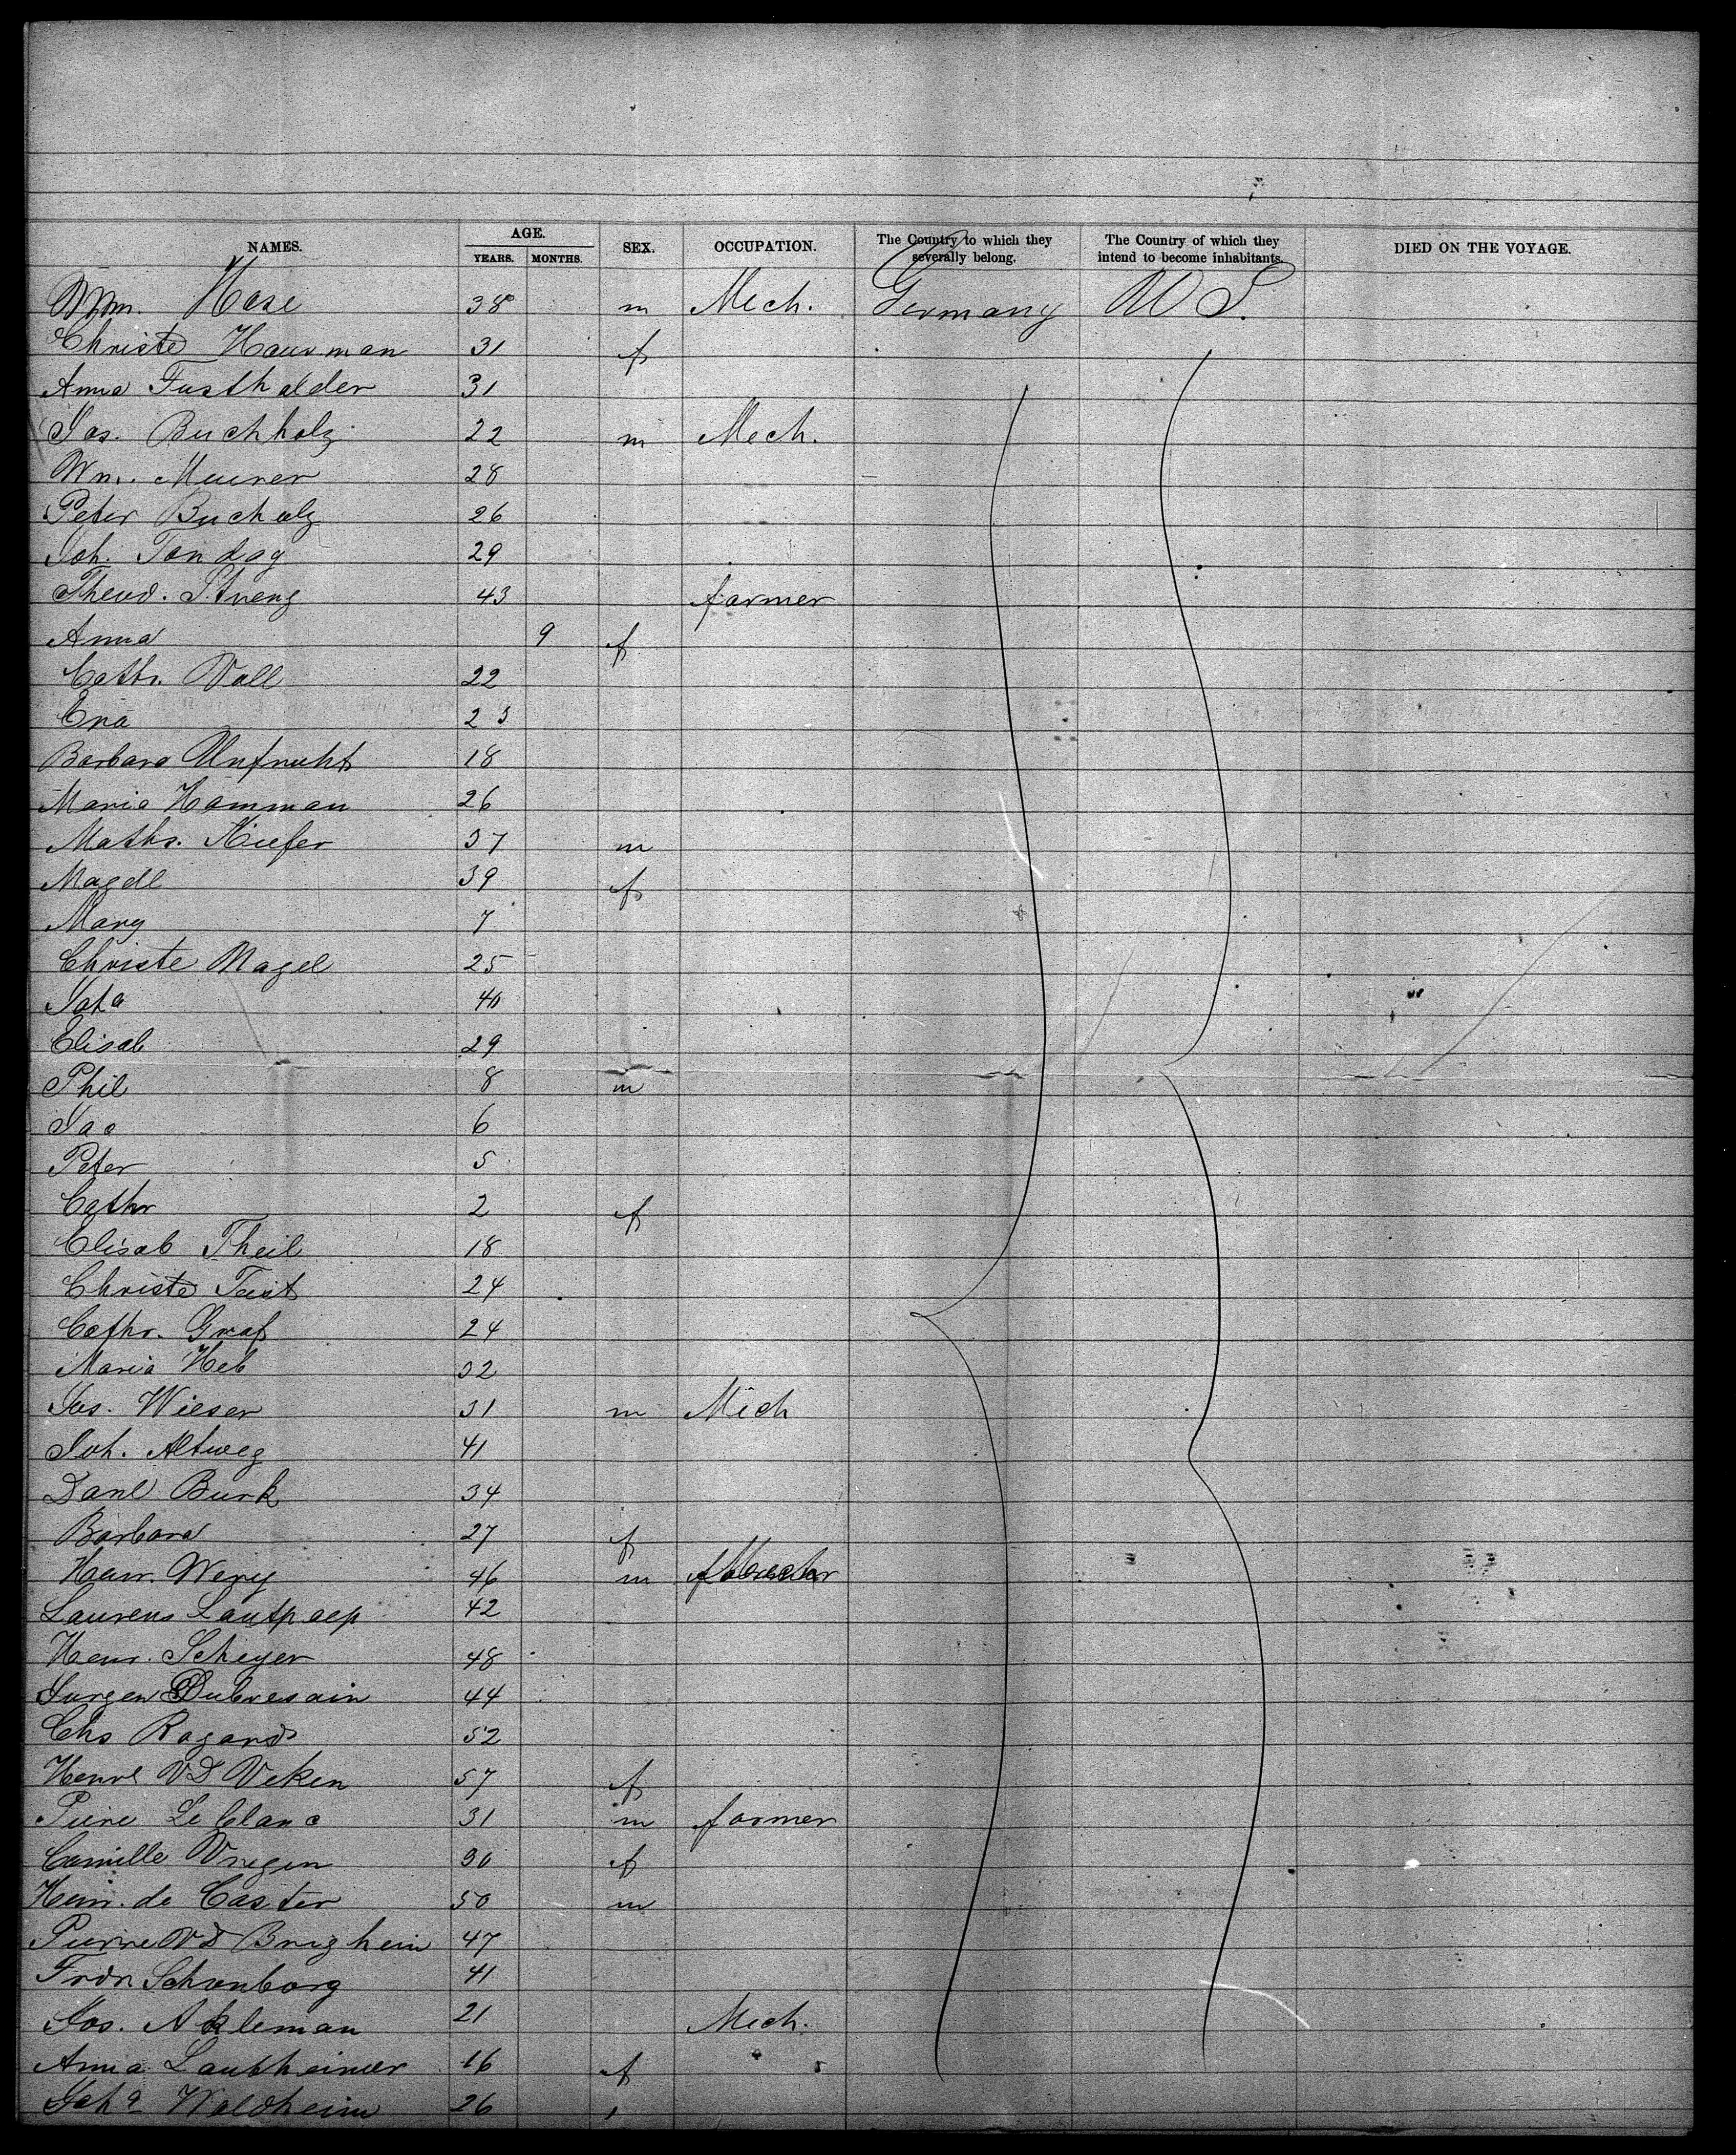 NAMES. AGE. SEX. OCCUPATION. The Country to which they severally belong. The Country of which they intend to become inhabitants. DIED ON THE VOYAGE.
YEARS. MONTHS.
Wm. Hase 38 m Mech. Germany U S.
Christe Hausman 31 f
Anna Fusthalder 31
Jos. Buchholz 22 m Mech.
Wm. Meurer 28
Peter Bucholz 26
Joh. Tonday 29
Theod. Streng 43 farmer
Anna 9 f
Cathr. Woll 22
Eva 23
Barbara 18
Maria Hamman 26
Maths. Kiefer 37 m
Magdl 39 f
Mary 7
Christe Nagel 25
Joha 40
Elisab 29
Phil 8 m
Jac 6
Peter 5
Cathr 2 f
Elisab Theil 18
Christe Tust 24
Cathr. Graf 24
Maria Heb 32
Jos. Wieser 31 m Mech
Joh. Altweg 41
Danl Burk 34
Barbara 27 f
Henr. Weny 46 m
Laurens 42
Henr. Scheyer 48
Jurgen Dubresain 44
Chs Rogards 52
Henre VD Veken 57 f
Piere Le Clanc 31 m farmer
Camille Vregen 30 f
Henr. de Caster 50 m
Pierre VD Brighein 47
Fredr Schonborg 41
Jos. Akleman 21 Mech.
Anna Laubheimer 16 f
Joha Waldheim 26